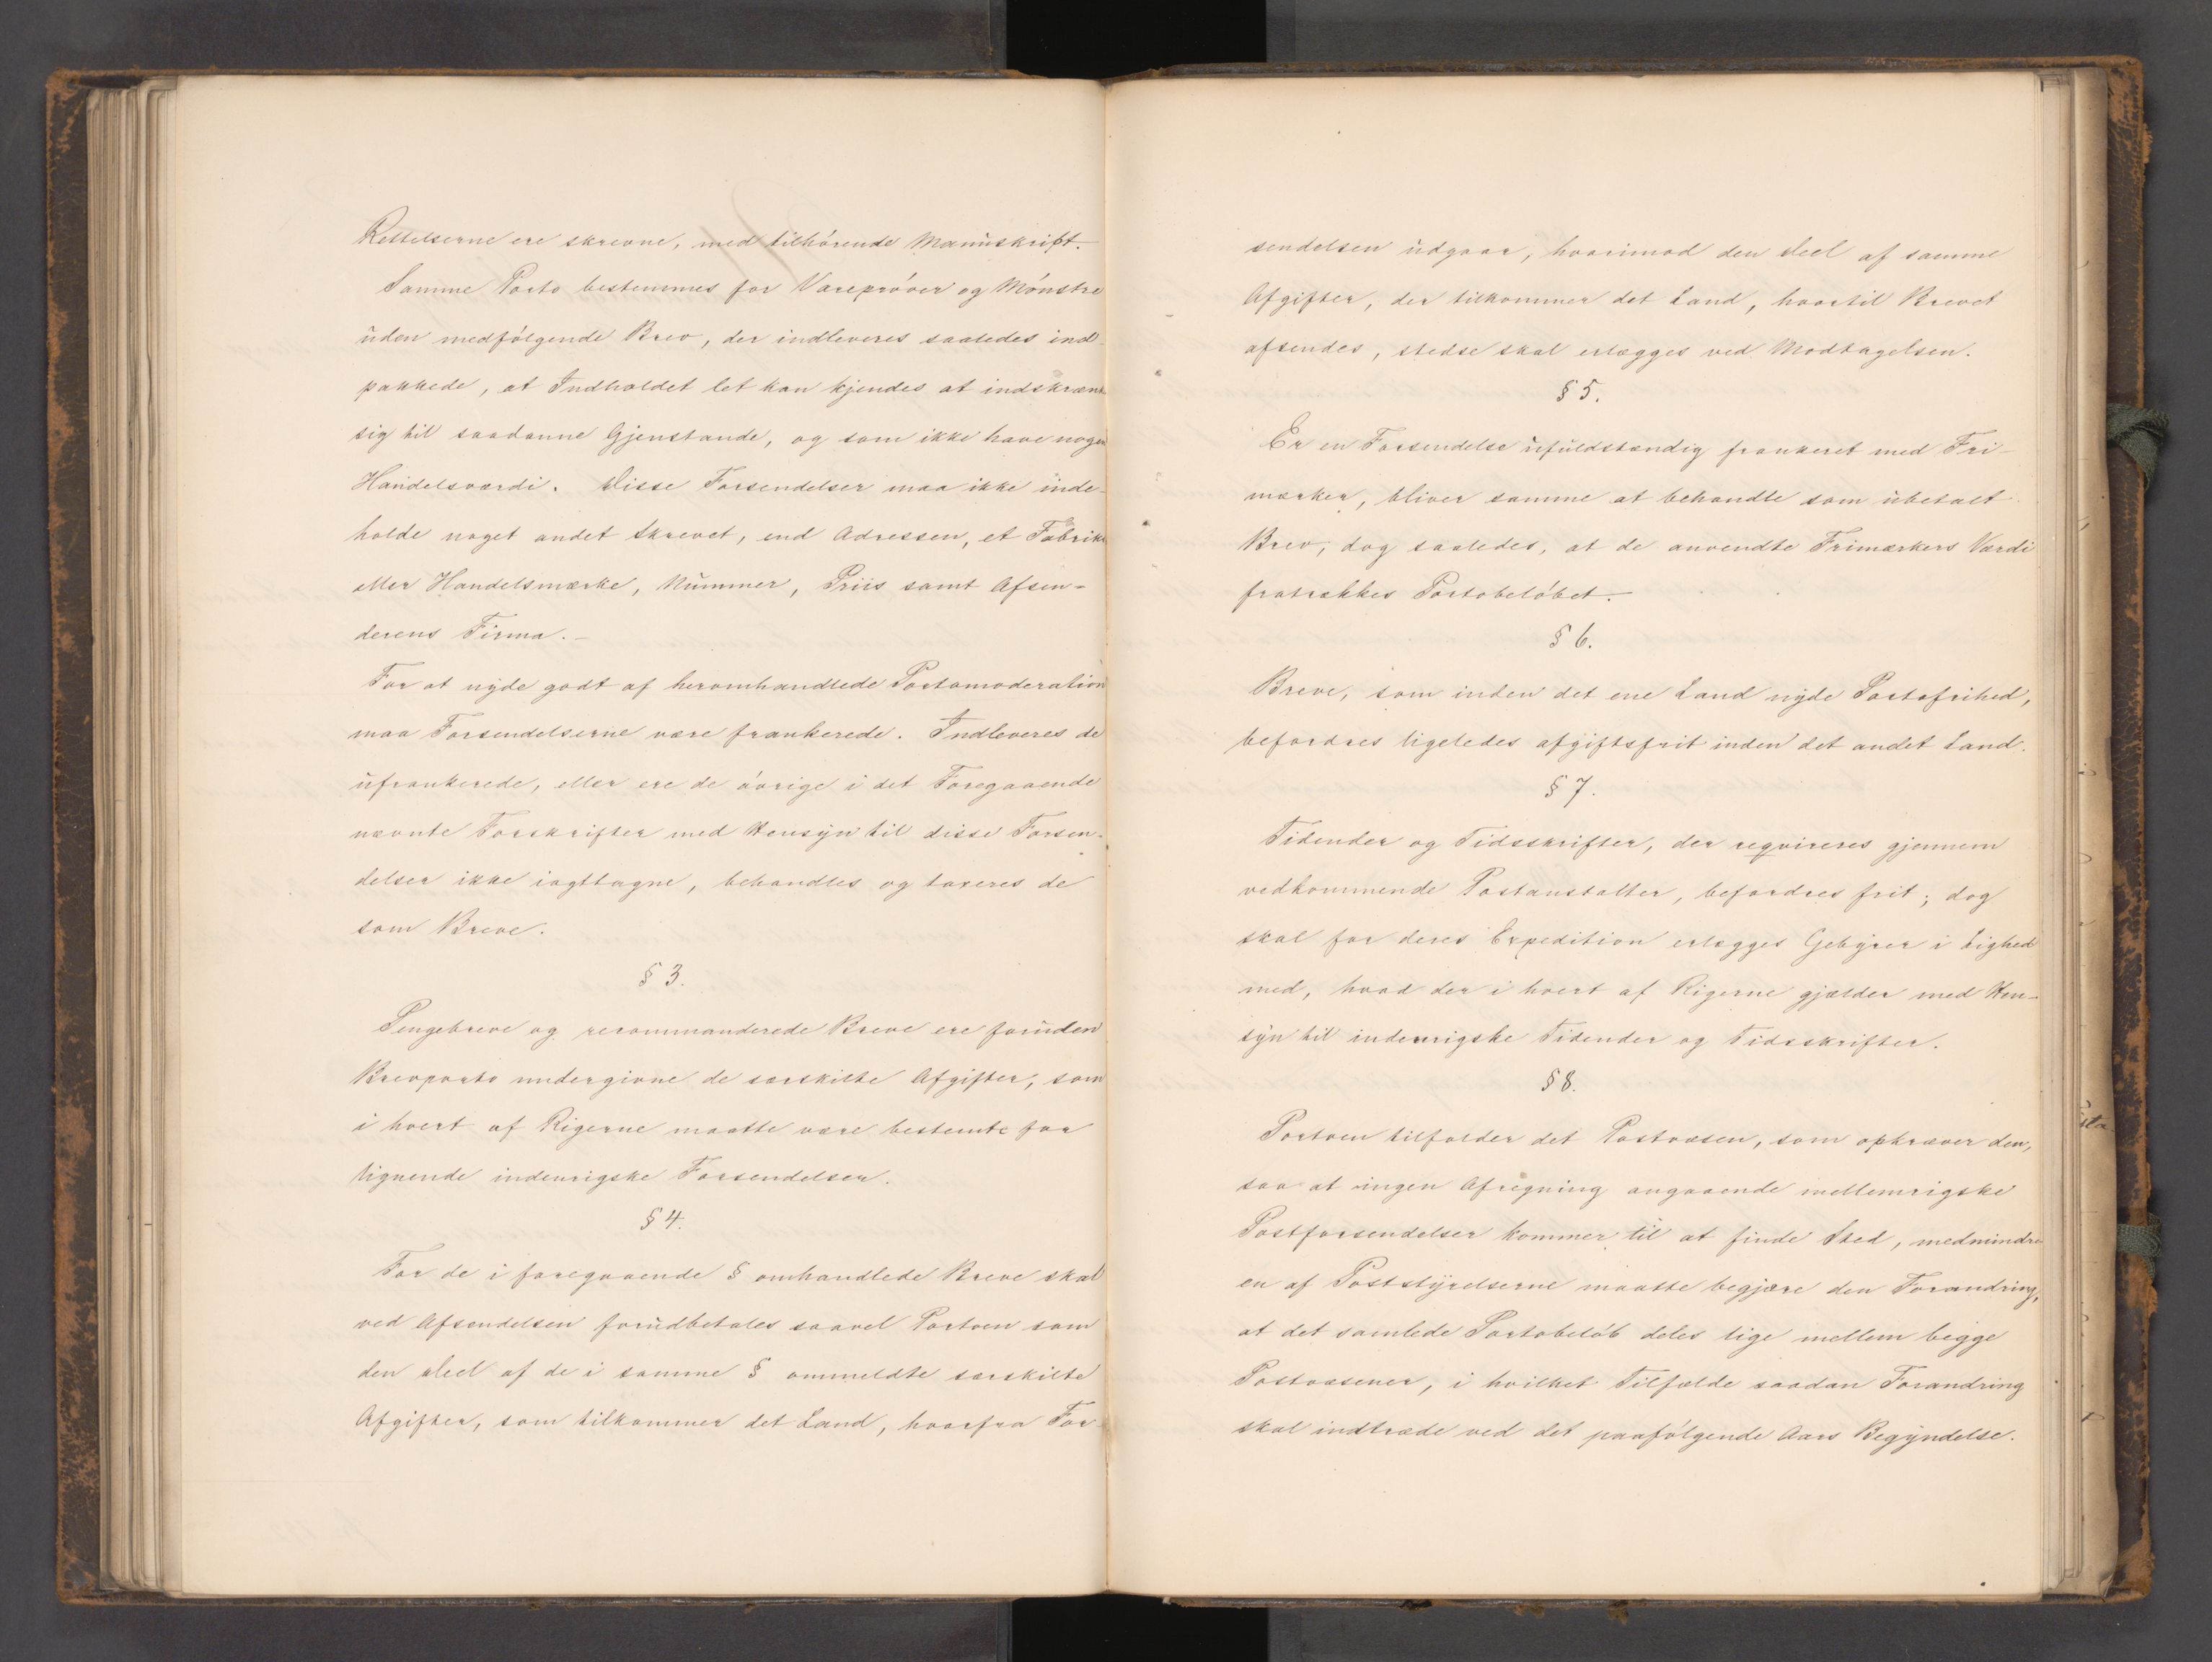 Rettelserne ere skrevne, med tilhörende Manuskript.
Samme Porto bestemmes for Varepröver og Mönstre
uden medfölgende Brev, der indleveres saaledes ind-
pakkede, at Indholdet let kan kjendes at indskrænke
sig til saadanne Gjenstande, og som ikke have nogen
Handelsværdi. Disse Forsendelser maa ikke inde-
holde noget andet Skrevet, end Adressen, et Fabrik-
eller Handelsmærke, Nummer, Priis samt Afsen-
derens Firma.—
For at nyde godt af heromhandlede Portomoderation
maa Forsendelserne være frankerede. Indleveres de
ufrankerede, eller ere de övrige i det Foregaaende
nævnte Forskrifter med Hensyn til disse Forsen-
delser ikke iagttagne, behandles og taxeres de
som Breve.
§ 3.
Pengebreve og recommanderede Breve ere foruden
Brevporto undergivne de særskilte Afgifter, som
i hvert af Rigerne maatte være bestemte for
lignende indenrigske Forsendelser.
§ 4.
For de i foregaaende § omhandlede Breve skal
ved Afsendelsen forudbetales saavel Portoen som
den Deel af de i samme § ommeldte særskilte
Afgifter, som tilkommer det Land, hvorfra For-
sendelsen udgaar, hvorimod den Deel af samme
Afgifter, der tilkommer det Land, hvortil Brevet
afsendes, stedse skal erlægges ved Modtagelsen.
§ 5.
Er en Forsendelse ufuldstændig frankeret med Fri-
mærker, bliver samme at behandle som ubetalt
Brev, dog saaledes, at de anvendte Frimærkers Værdi
fratrækkes Portobelöbet.—
§ 6.
Breve, som inden det ene Land nyde Portofrihed,
befordres ligeledes afgiftsfrit inden det andet Land.
§ 7.
Tidender og Tidsskrifter, der reqvireres gjennem
vedkommende Postanstalter, befordres frit; dog
skal for deres Expedition erlægges Gebyrer i Lighed
med, hvad der i hvert af Rigerne gjælder med Hen-
syn til indenrigske Tidender og Tidsskrifter.
§ 8.
Portoen tilfalder det Postvæsen, som opkræver den,
saa at ingen Afregning angaaende mellemrigske
Postforsendelser kommer til at finde Sted, medmindre
en af Poststyrelserne maatte begjære den Forandring,
at det samlede Portobelöb deles lige mellem begge
Postvæsener, i hvilket Tilfælde saadan Forandring
skal indtræde ved det paafölgende Aars Begyndelse.